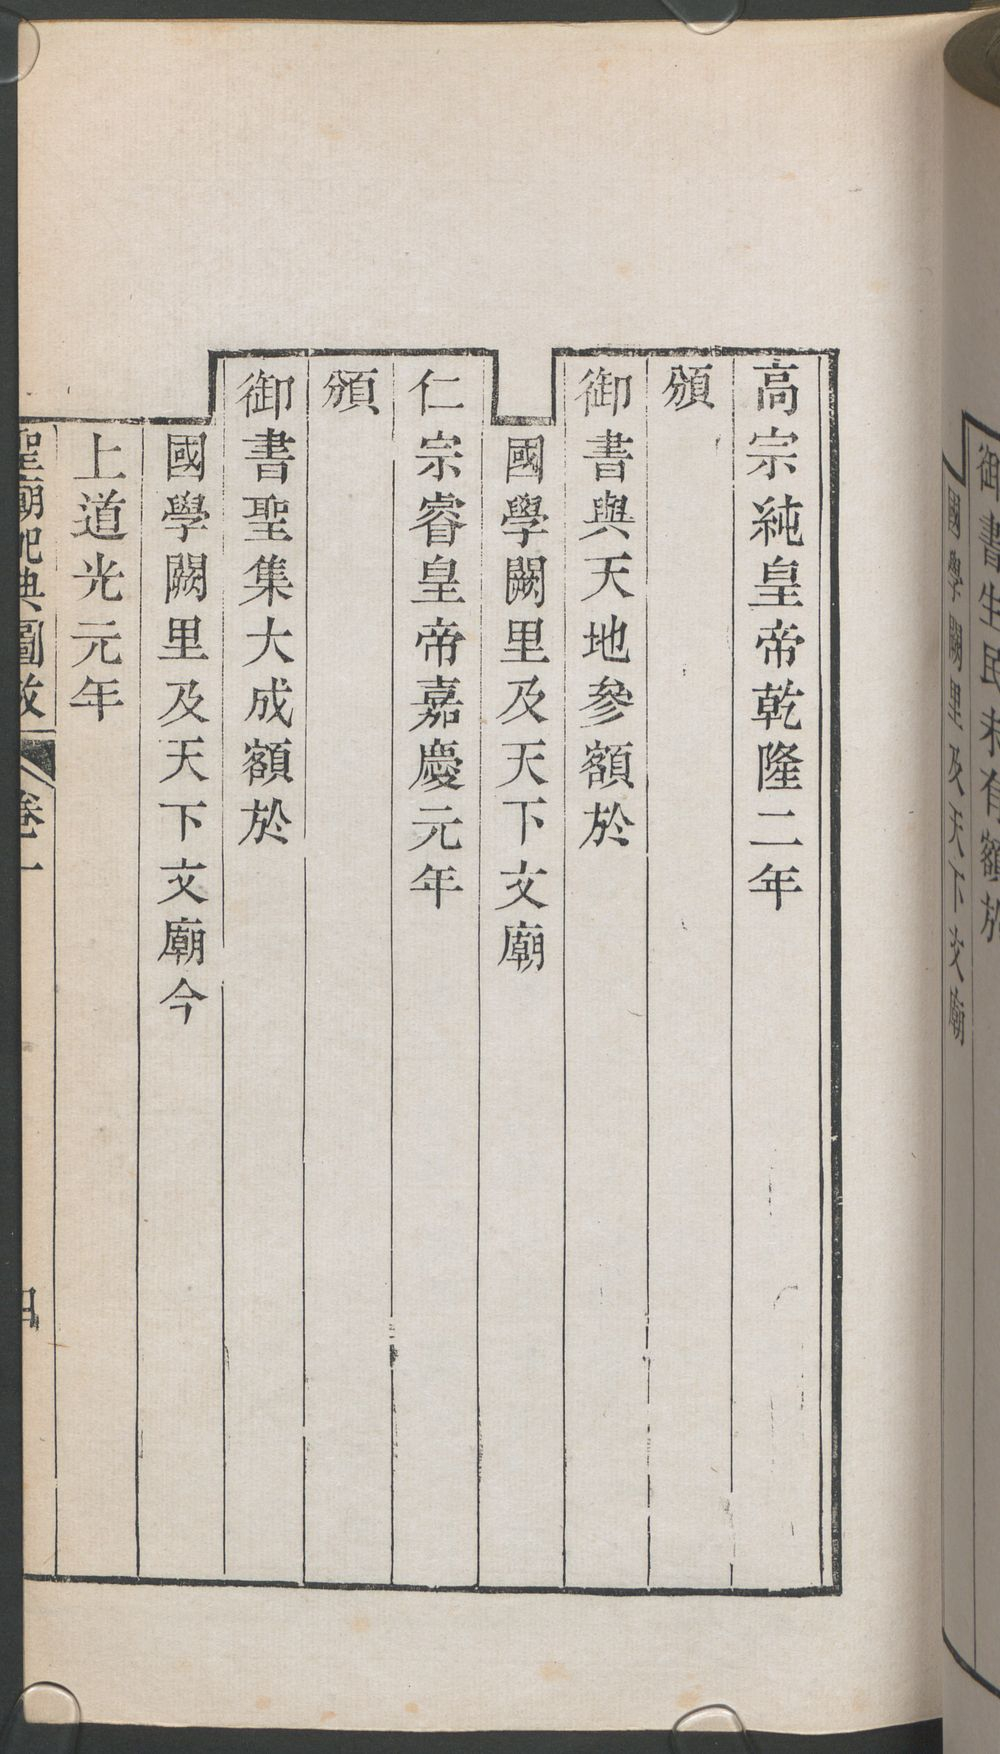 御書生民未有額於
國學闕里及天下文廟
高宗純皇帝乾隆二年
頒
御書與天地參額於
國學闕里及天下文廟
仁宗睿皇帝嘉慶元年
頒
御書聖集大成額於
國學闕里及天下文廟今
上道光元年
聖廟祀典圖攷
卷一
四